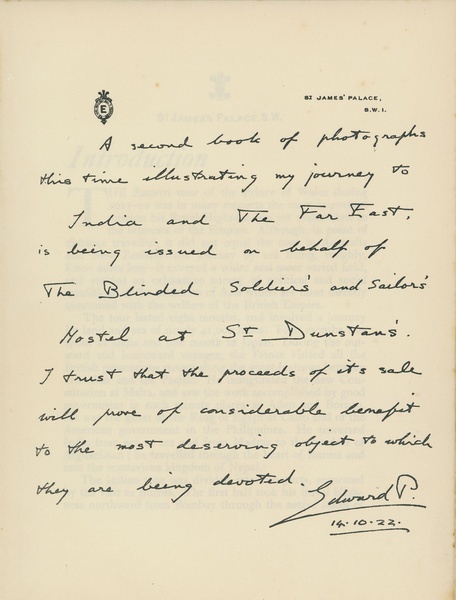 E
ST JAMES' PALACE,
S.W.1.
A second book of photographs
this time illustrating my journey to
India and The Far East.
is being issued on behalf of
The Blinded - Soldier's and Sailor's
Hostel at St Dunstan's.
I trust that the proceeds of it's sale
will prove of considerable benefit
to the most deserving object to which
they are being devoted.
Edward P.
14.10.22.